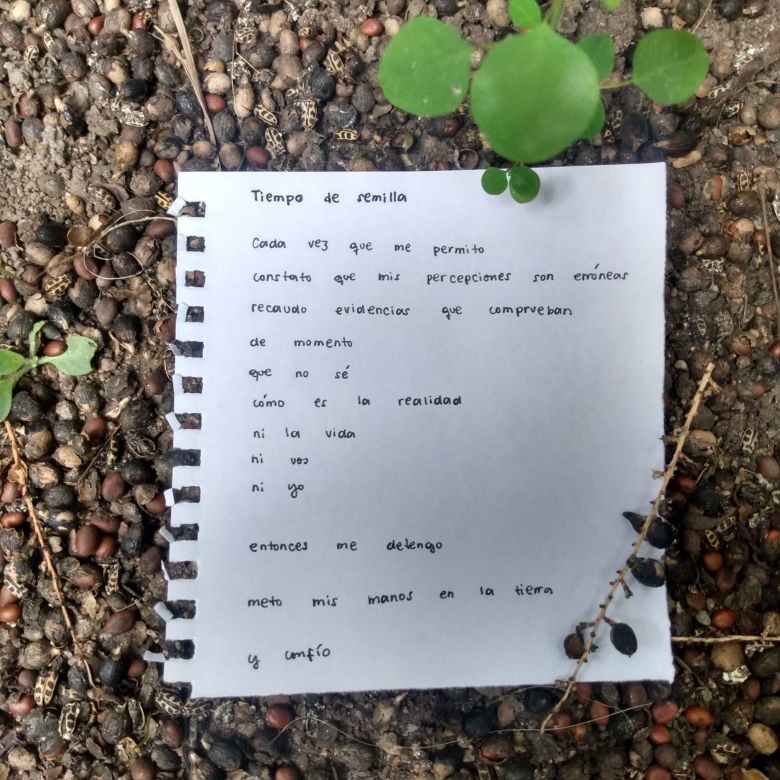 Tiempo de semilla
Cada vez que me permito
constato que mis percepciones son erróneas
recaudo evidencias que comprueban
de momento
que no sé
cómo es la realidad
ni la vida
ni vos
ni yo
entonces me detengo
meto mis manos en la tierra
y confío